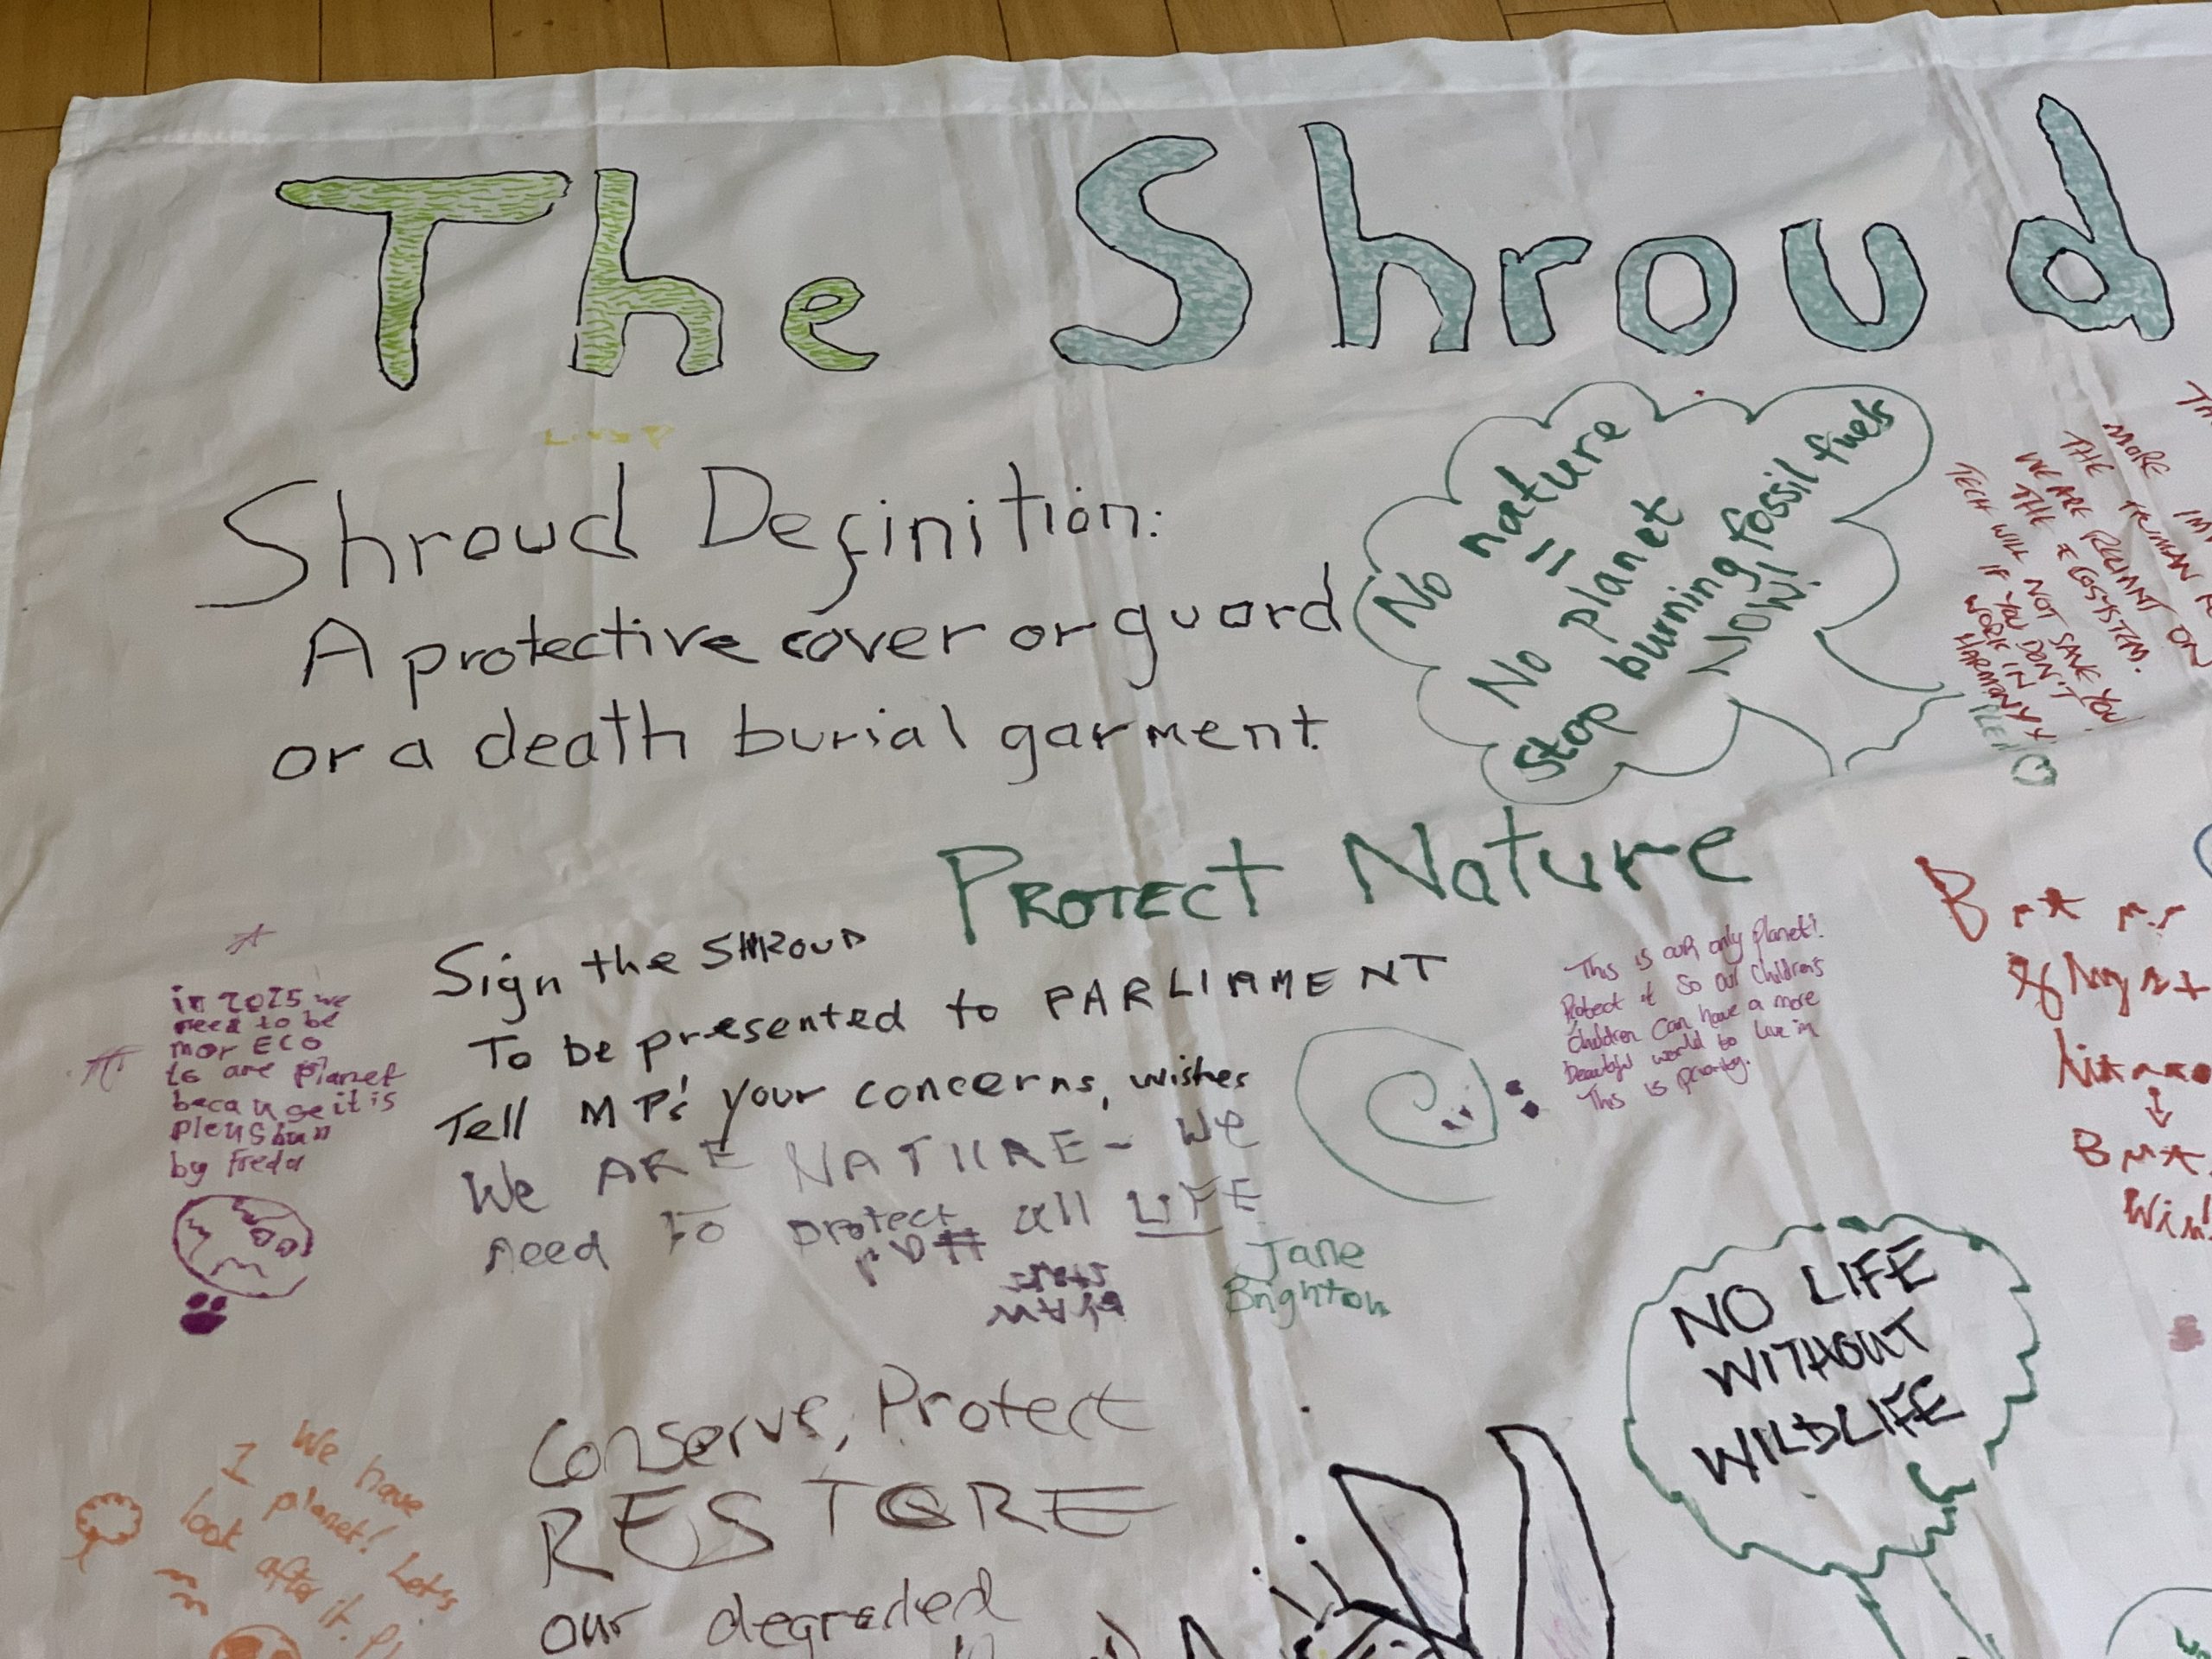 The Shroud
Shroud Definition:
A protective cover or guard
or a death burial garment.
No nature
=
No planet
Stop burning fossil fuels
NOW!
MORE
THE HUMAN
WE ARE RELIANT ON
THE ECOSYSTEM.
TECH WILL NOT SAVE YOU
IF YOU DON'T
WORK IN
HARMONY
PROTECT Nature
Sign the SHROUD
To be presented to PARLIAMENT
Tell MP's your concerns, wishes
We ARE NATURE - we
need to protect all LIFE
Jane
Brighton
in 2025 we
need to be
mor ECO
to are planet
because it is
by Freda
This is our only planet!
Protect it so our children's
children can have a more
beautiful world to live in
This is priority.
NO LIFE
WITHOUT
WILDLIFE
Conserve, Protect
RESTORE
our degraded
We have
1 planet! Let's
look after it.